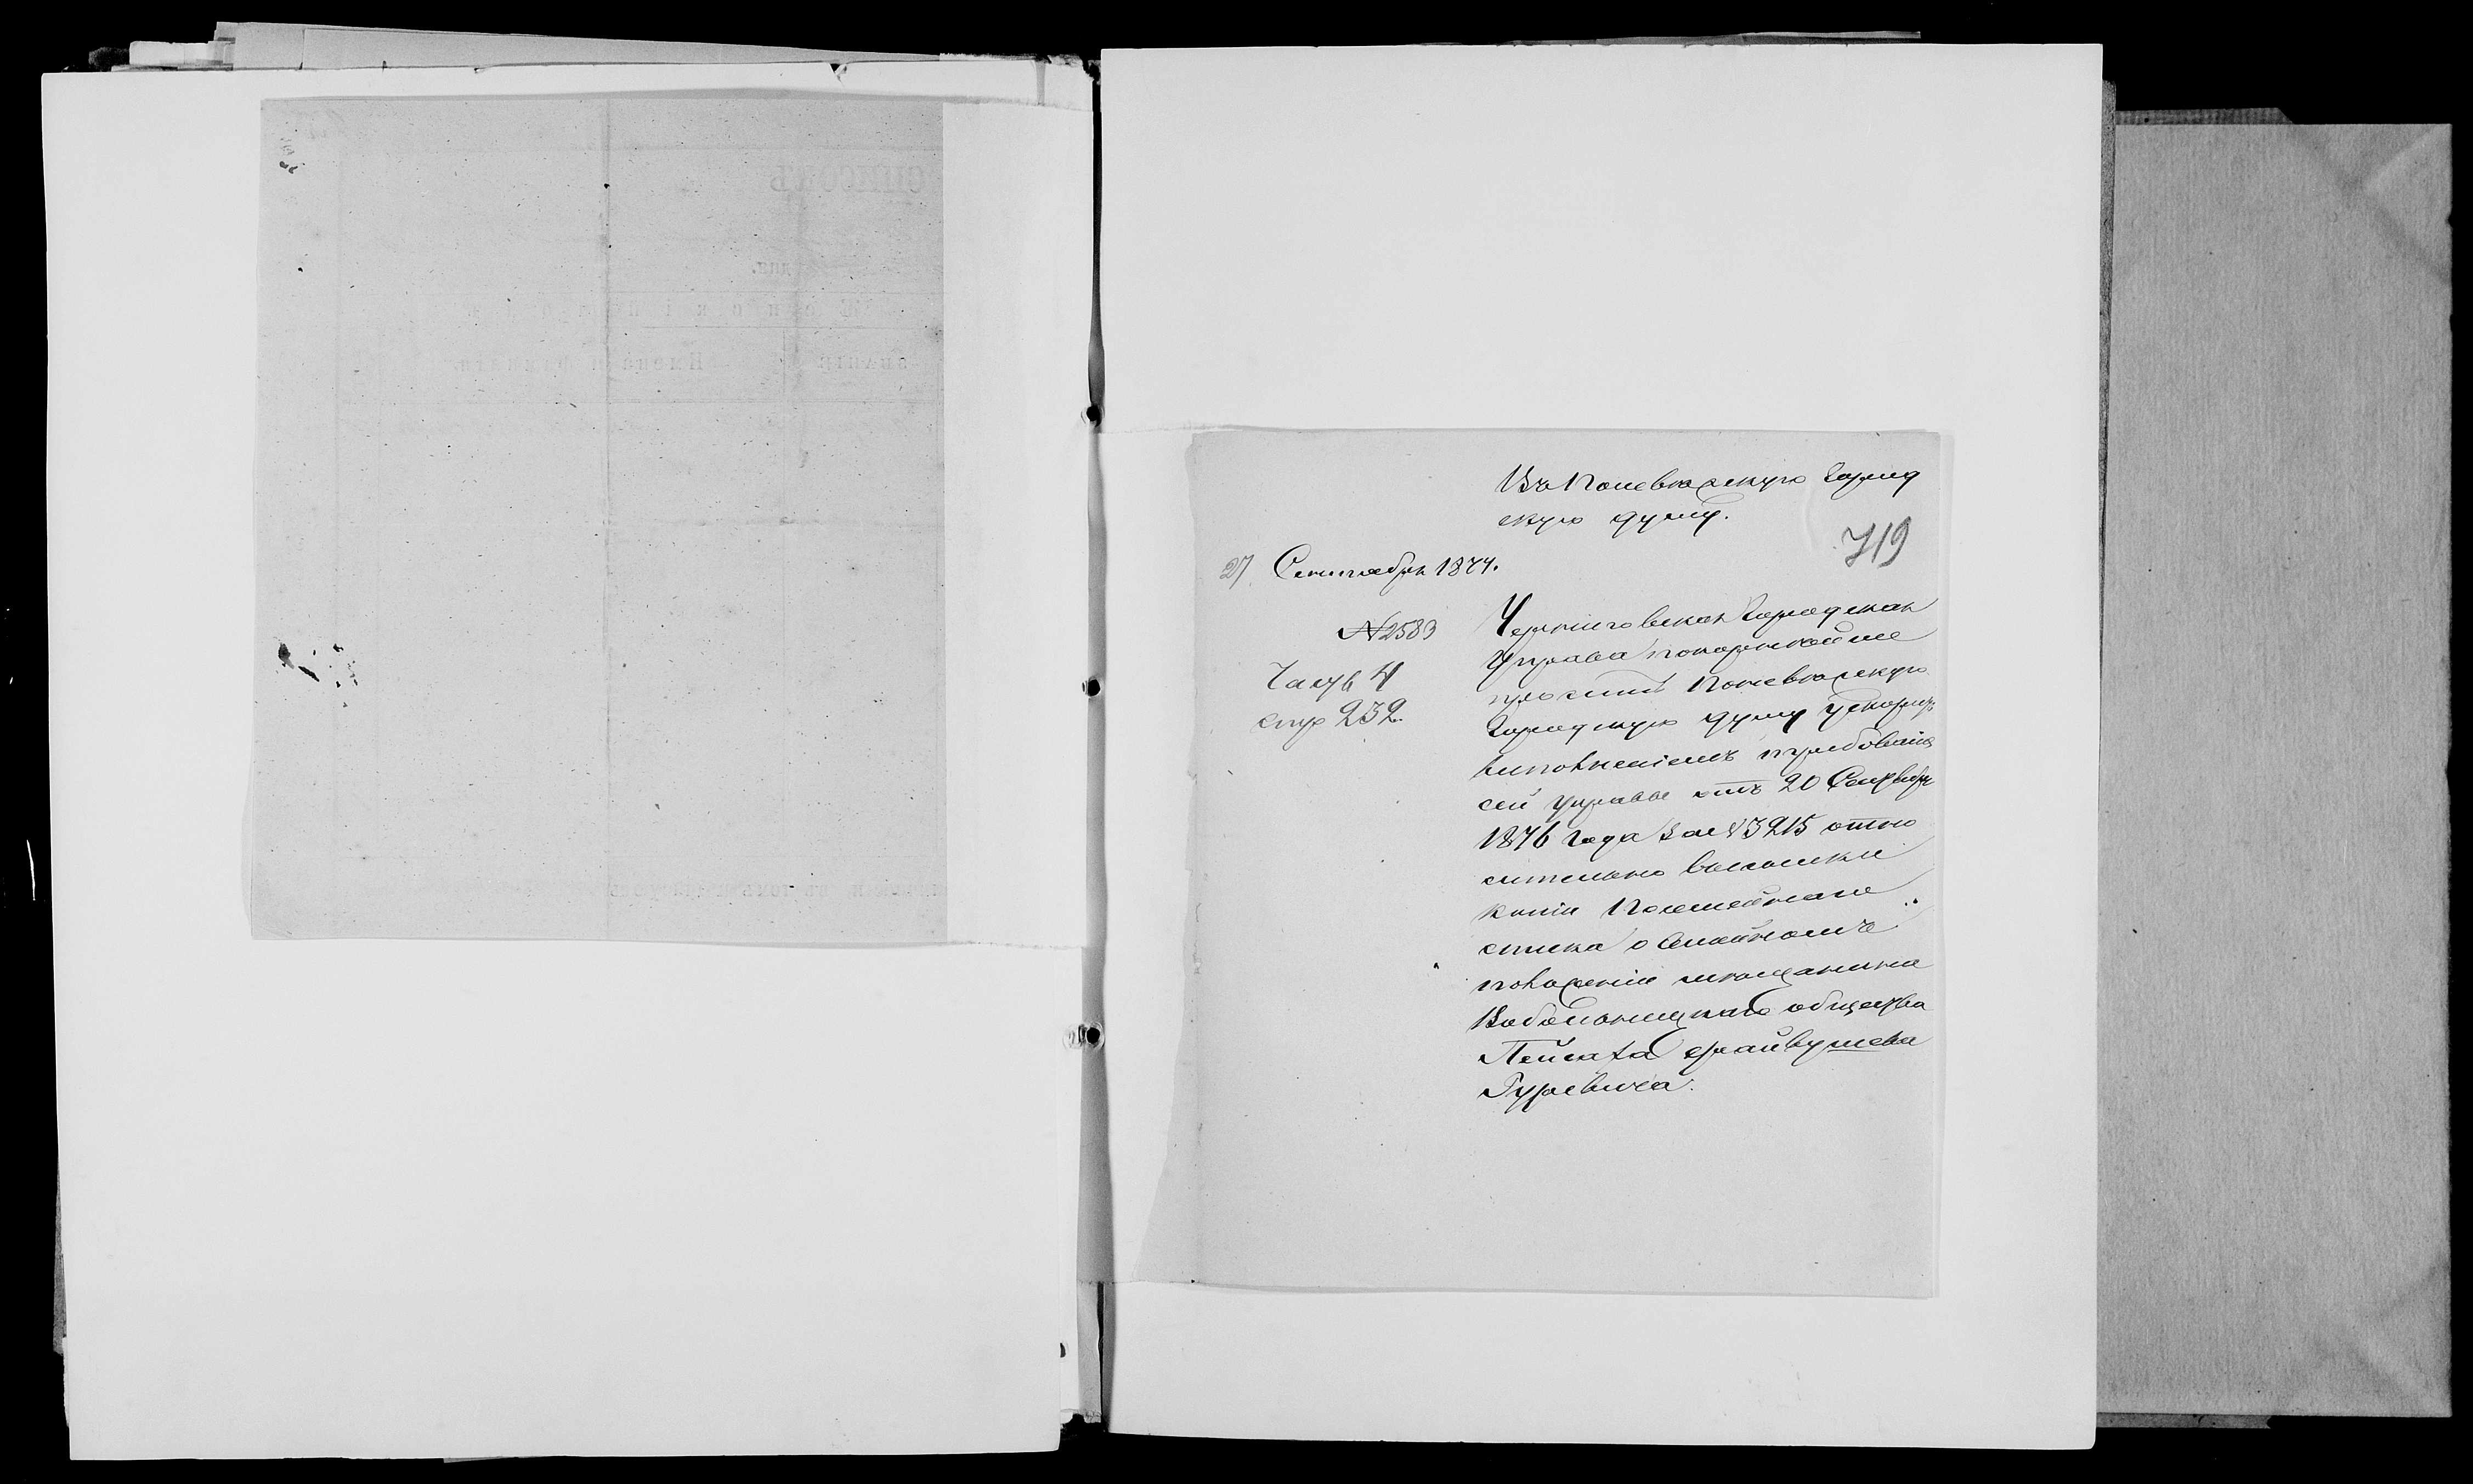 Въ Поневѣжскую Город
скую думу.
719
27 Сентября 1877.
№ 2583
Часть 4
стр 232
Черниговская Городская
Управа покорнейше
проситъ Поневѣжскую
Городскую думу ускорить
выполненіемъ требованія
сей управы отъ 20 Сентября
1876 года за № 3215 отно
сительно высылки
копіи Посемейнаго
списка о семейномъ
положеніи мѣщанина
Вобольницкаго общества
Пейсаха Срайвушева
Гуревича.
СПИСОКЪ
Имена и фамиліи.